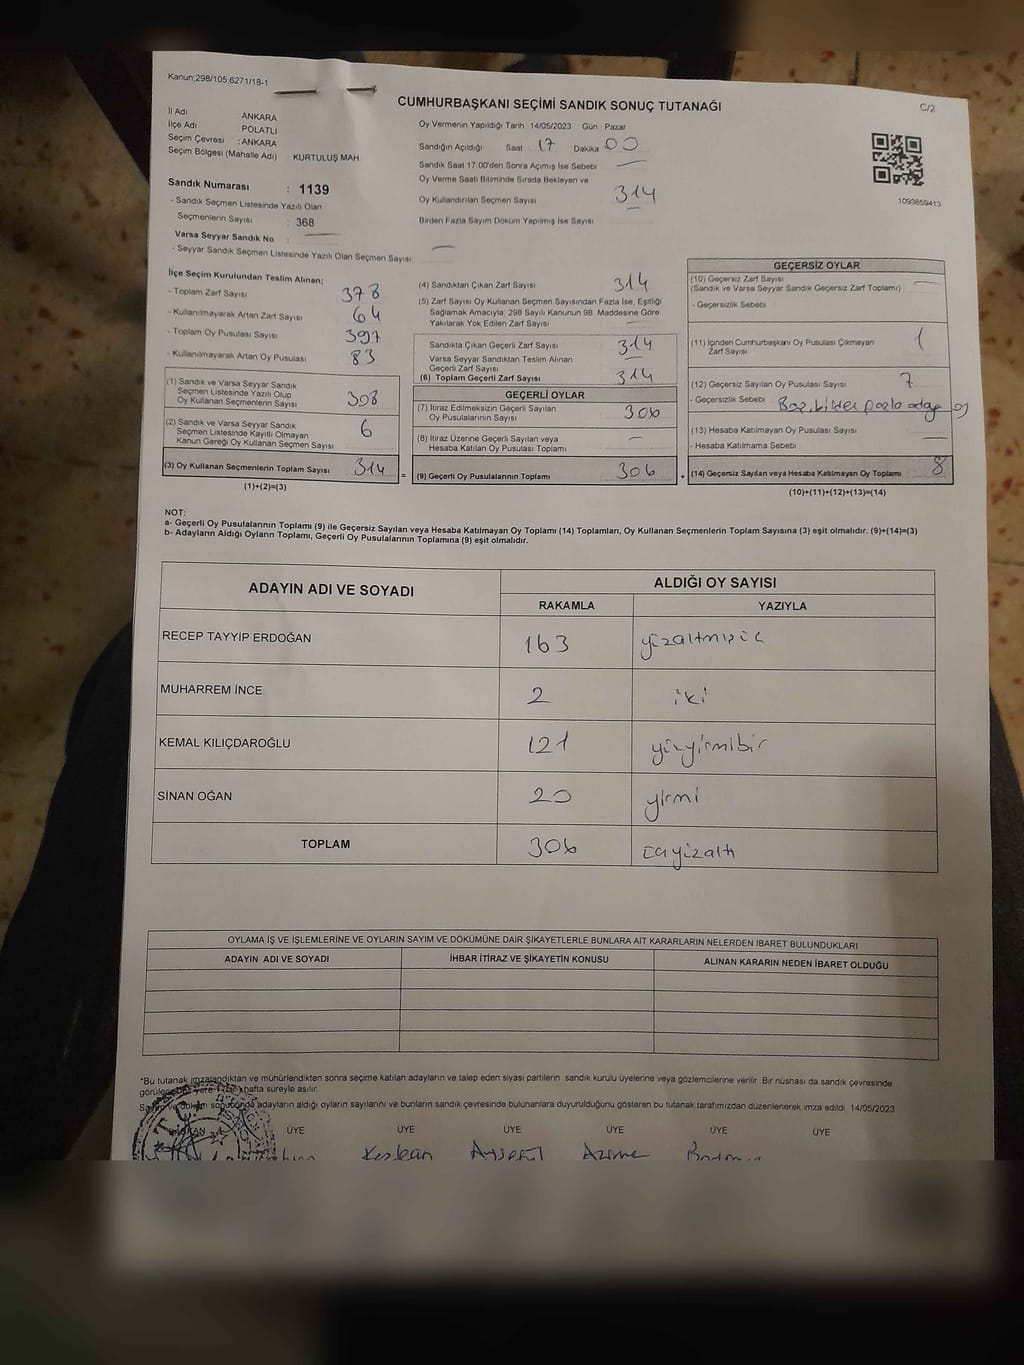 Kanun;298/105,6271/18-1
C/2
CUMHURBAŞKANI SEÇİMİ SANDIK SONUÇ TUTANAĞI
İl Adı ANKARA
İlçe Adı POLATLI
Seçim Çevresi : ANKARA
Seçim Bölgesi (Mahalle Adı) KURTULUŞ MAH
Sandık Numarası : 1139
- Sandık Seçmen Listesinde Yazılı Olan
Seçmenlerin Sayısı : 368
Varsa Seyyar Sandık No :
- Seyyar Sandık Seçmen Listesinde Yazılı Olan Seçmen Sayısı
Oy Vermenin Yapıldığı Tarih 14/05/2023 Gün Pazar
Sandığın Açıldığı Saat 17 Dakika 00
Sandık Saat 17.00'den Sonra Açımış İse Sebebi
Oy Verme Saati Bitiminde Sırada Bekleyen ve
Oy Kullandırılan Seçmen Sayısı 314
Birden Fazla Sayım Döküm Yapılmış İse Sayısı
1093859413
İlçe Seçim Kurulundan Teslim Alınan;
- Toplam Zarf Sayısı 378
- Kullanılmayarak Artan Zarf Sayısı 64
- Toplam Oy Pusulası Sayısı 397
- Kullanılmayarak Artan Oy Pusulası 83
(1) Sandık ve Varsa Seyyar Sandık
Seçmen Listesinde Yazılı Olup
Oy Kullanan Seçmenlerin Sayısı 308
(2) Sandık ve Varsa Seyyar Sandık
Seçmen Listesinde Kayıtlı Olmayan
Kanun Gereği Oy Kullanan Seçmen Sayısı 6
(3) Oy Kullanan Seçmenlerin Toplam Sayısı 314 =
(1)+(2)=(3)
(4) Sandıktan Çıkan Zarf Sayısı 314
(5) Zarf Sayısı Oy Kullanan Seçmen Sayısından Fazla İse, Eşitliği
Sağlamak Amacıyla; 298 Sayılı Kanunun 98. Maddesine Göre
Yakılarak Yok Edilen Zarf Sayısı
Sandıkta Çıkan Geçerli Zarf Sayısı 314
Varsa Seyyar Sandıktan Teslim Alınan
Geçerli Zarf Sayısı
(6) Toplam Geçerli Zarf Sayısı 314
GEÇERLİ OYLAR
(7) İtiraz Edilmeksizin Geçerli Sayılan
Oy Pusulalarının Sayısı 306
(8) İtiraz Üzerine Geçerli Sayılan veya
Hesaba Katılan Oy Pusulası Toplamı
(9) Geçerli Oy Pusulalarının Toplamı 306 +
GEÇERSİZ OYLAR
(10) Geçersiz Zarf Sayısı
(Sandık ve Varsa Seyyar Sandık Geçersiz Zarf Toplamı)
- Geçersizlik Sebebi
(11) İçinden Cumhurbaşkanı Oy Pusulası Çıkmayan
Zarf Sayısı 1
(12) Geçersiz Sayılan Oy Pusulası Sayısı 7
- Geçersizlik Sebebi fazla aday
(13) Hesaba Katılmayan Oy Pusulası Sayısı
- Hesaba Katılmama Sebebi
(14) Geçersiz Sayılan veya Hesaba Katılmayan Oy Toplamı 8
(10)+(11)+(12)+(13)=(14)
NOT:
a- Geçerli Oy Pusulalarının Toplamı (9) ile Geçersiz Sayılan veya Hesaba Katılmayan Oy Toplamı (14) Toplamları, Oy Kullanan Seçmenlerin Toplam Sayısına (3) eşit olmalıdır. (9)+(14)=(3)
b- Adayların Aldığı Oyların Toplamı, Geçerli Oy Pusulalarının Toplamına (9) eşit olmalıdır.
ADAYIN ADI VE SOYADI ALDIĞI OY SAYISI
RAKAMLA YAZIYLA
RECEP TAYYİP ERDOĞAN 163 yüzaltmışüç
MUHARREM İNCE 2 iki
KEMAL KILIÇDAROĞLU 121 yüzyirmibir
SİNAN OĞAN 20 yirmi
TOPLAM 306 üçyüzaltı
OYLAMA İŞ VE İŞLEMLERİNE VE OYLARIN SAYIM VE DÖKÜMÜNE DAİR ŞİKAYETLERLE BUNLARA AİT KARARLARIN NELERDEN İBARET BULUNDUKLARI
ADAYIN ADI VE SOYADI İHBAR İTİRAZ VE ŞİKAYETİN KONUSU ALINAN KARARIN NEDEN İBARET OLDUĞU
"Bu tutanak imzalandıktan ve mühürlendikten sonra seçime katılan adayların ve talep eden siyasi partilerin sandık kurulu üyelerine veya gözlemcilerine verilir. Bir nüshası da sandık çevresinde
hafta süreyle asılır.
adayların aldığı oyların sayılarını ve bunların sandık çevresinde bulunanlara duyurulduğunu gösteren bu tutanak tarafımızdan düzenlenerek imza edildi. 14/05/2023
ÜYE ÜYE ÜYE ÜYE ÜYE ÜYE